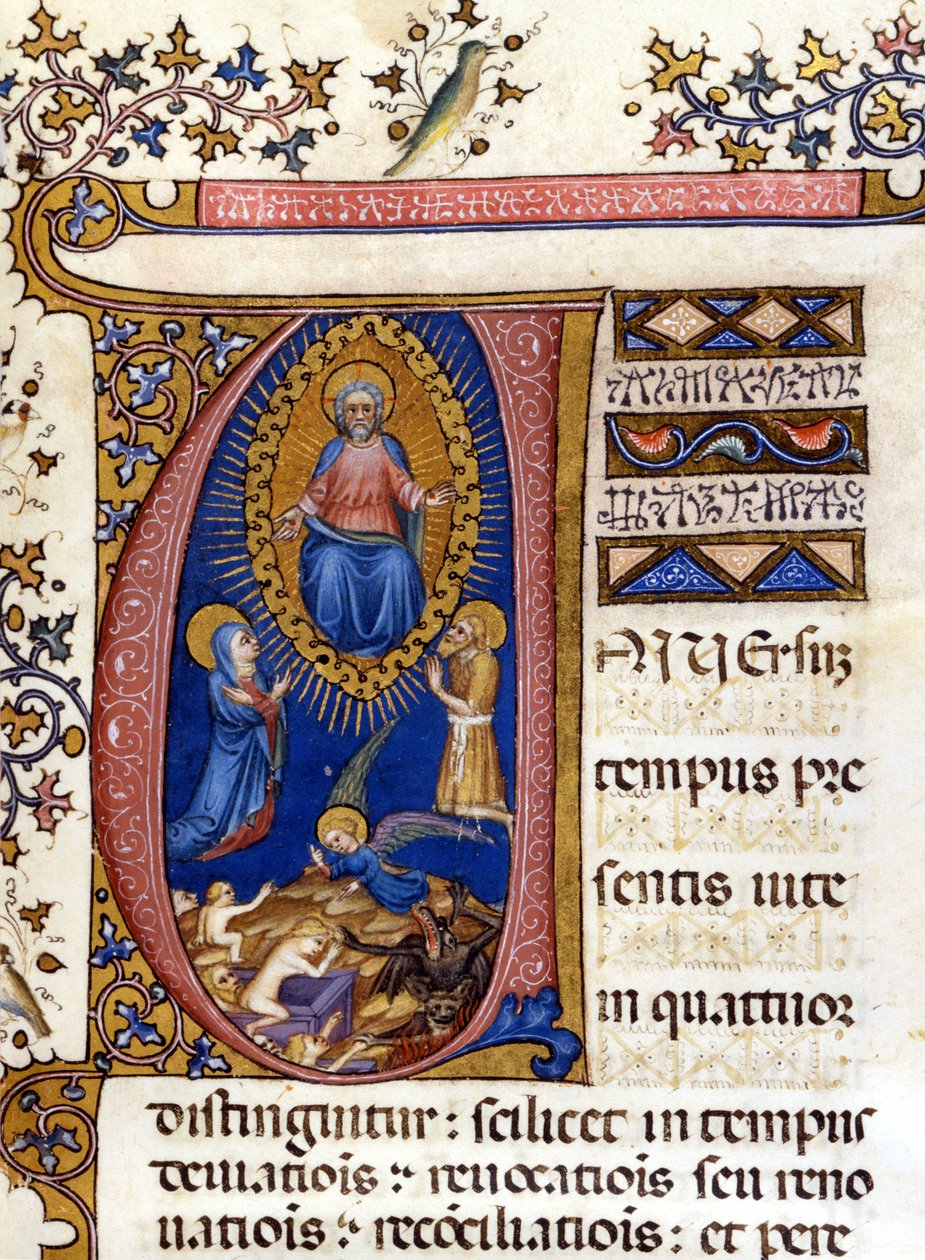 UNIUErsuʒ
tempus pre
sentis uite
in quattuor
distinguitur : scilicet in tempus
deuiatiōis : reuocatiōis seu reno
uatiōis : recōciliatiōis : et pere